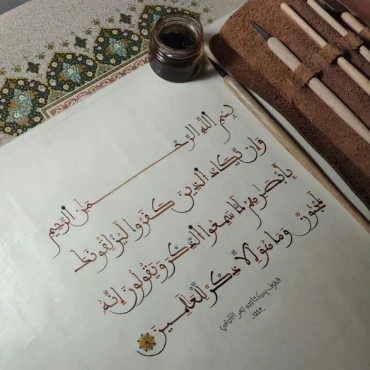 بِسْمِ اللَّهِ الرَّحْمَٰنِ الرَّحِيمِ
وَإِن يَكَادُ الَّذِينَ كَفَرُوا لَيُزْلِقُونَكَ
بِأَبْصَارِهِمْ لَمَّا سَمِعُوا الذِّكْرَ وَيَقُولُونَ إِنَّهُ
لَمَجْنُونٌ وَمَا هُوَ إِلَّا ذِكْرٌ لِّلْعَالَمِينَ